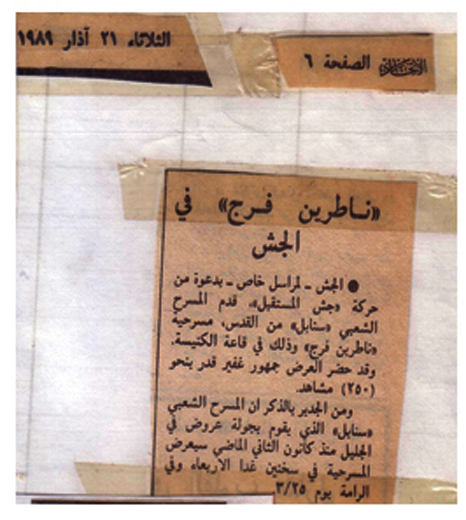 الثلاثاء ٢١ آذار ١٩٨٩
الاتحاد الصفحة ٦
«ناطرين فرج» في
الجش
● الجش - لمراسل خاص - بدعوة من
حركة «جش المستقبل»، قدم المسرح
الشعبي «سنابل» من القدس، مسرحية
«ناطرين فرج» وذلك في قاعة الكنيسة.
وقد حضر العرض جمهور غفير قدر بنحو
(٢٥٠) مشاهد.
ومن الجدير بالذكر ان المسرح الشعبي
«سنابل» الذي يقوم بجولة عروض في
الجليل منذ كانون الثاني الماضي سيعرض
المسرحية في سخنين غدا الاربعاء وفي
الرامة يوم ٣/٢٥